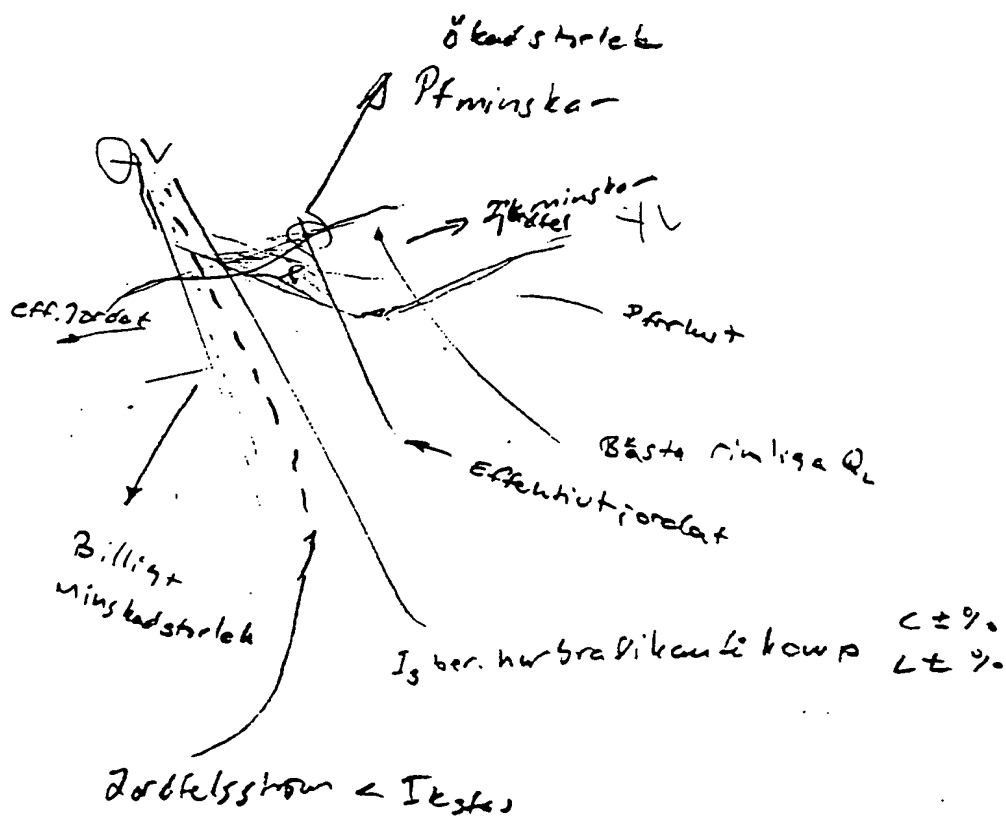 ökad storlek
Pf minskar
Ijordfel minskar
eff. jordat
Pförlust
Bästa rimliga QL
Effektivt jordat
Billigt
minskad storlek
Is ber. hur bra vi kan komp
C ± %
L ± %
Jordfelsström < Ik3fas